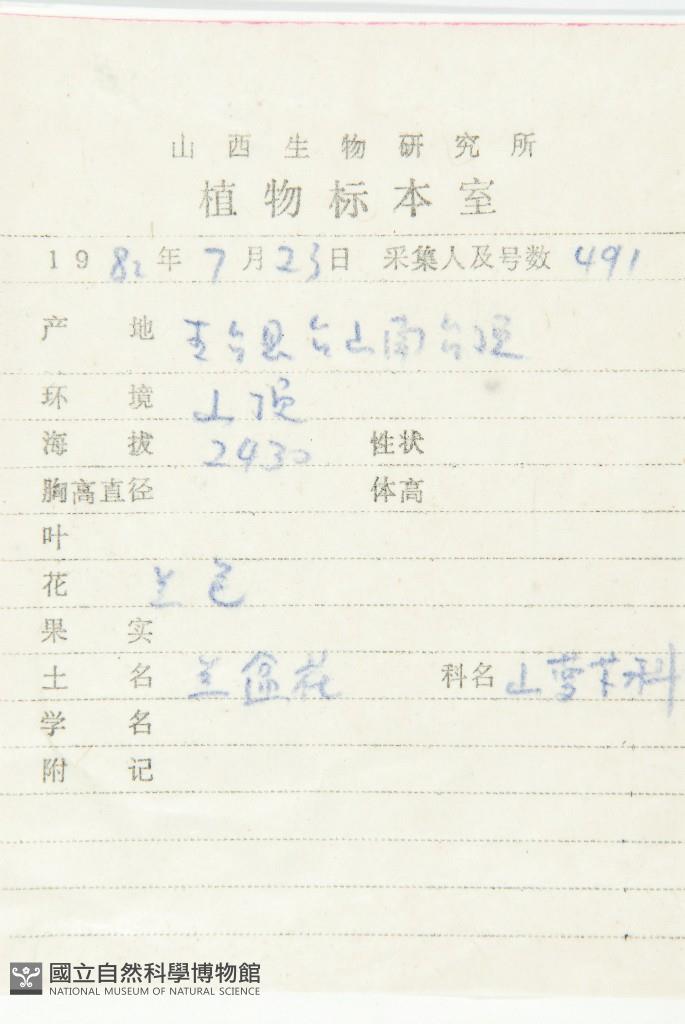 山西生物研究所
植物标本室
1982年7月23日 采集人及号数 491
产地 五台县台山南台顶
环境 山顶
海拔 2430 性状
胸高直径 体高
叶
花 兰色
果实
土名 兰盆花 科名 山萝卜科
学名
附记
國立自然科學博物館
NATIONAL MUSEUM OF NATURAL SCIENCE